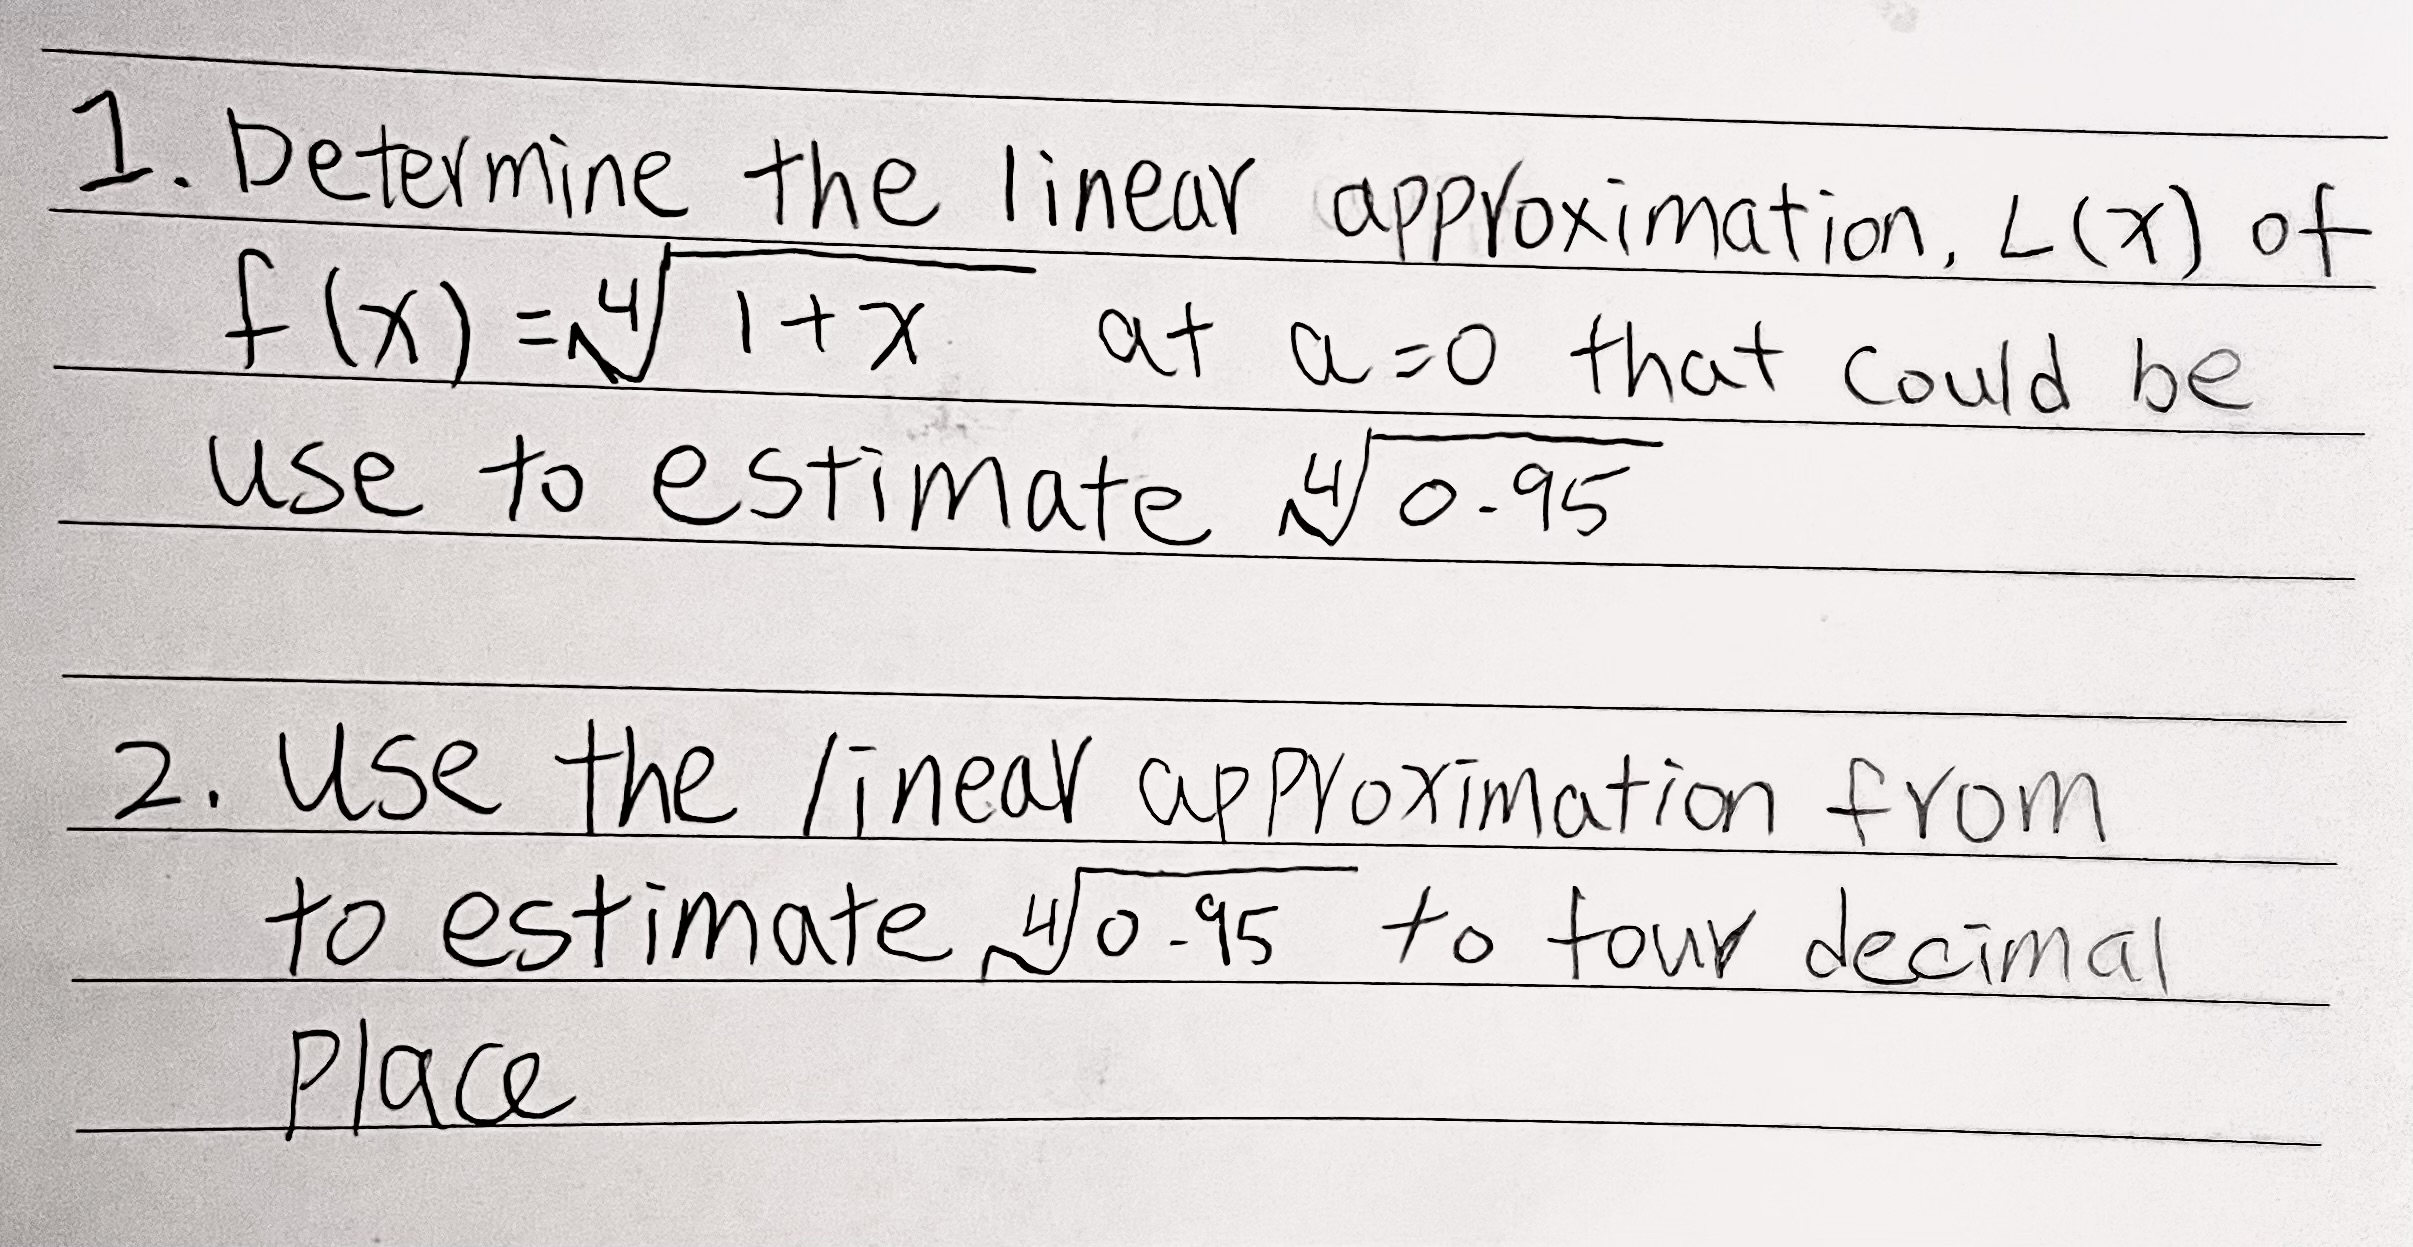 1. Determine the linear approximation, L(x) of
f(x) = ∜1+x at a=0 that could be
use to estimate ∜0.95
2. Use the linear approximation from
to estimate ∜0.95 to four decimal
Place